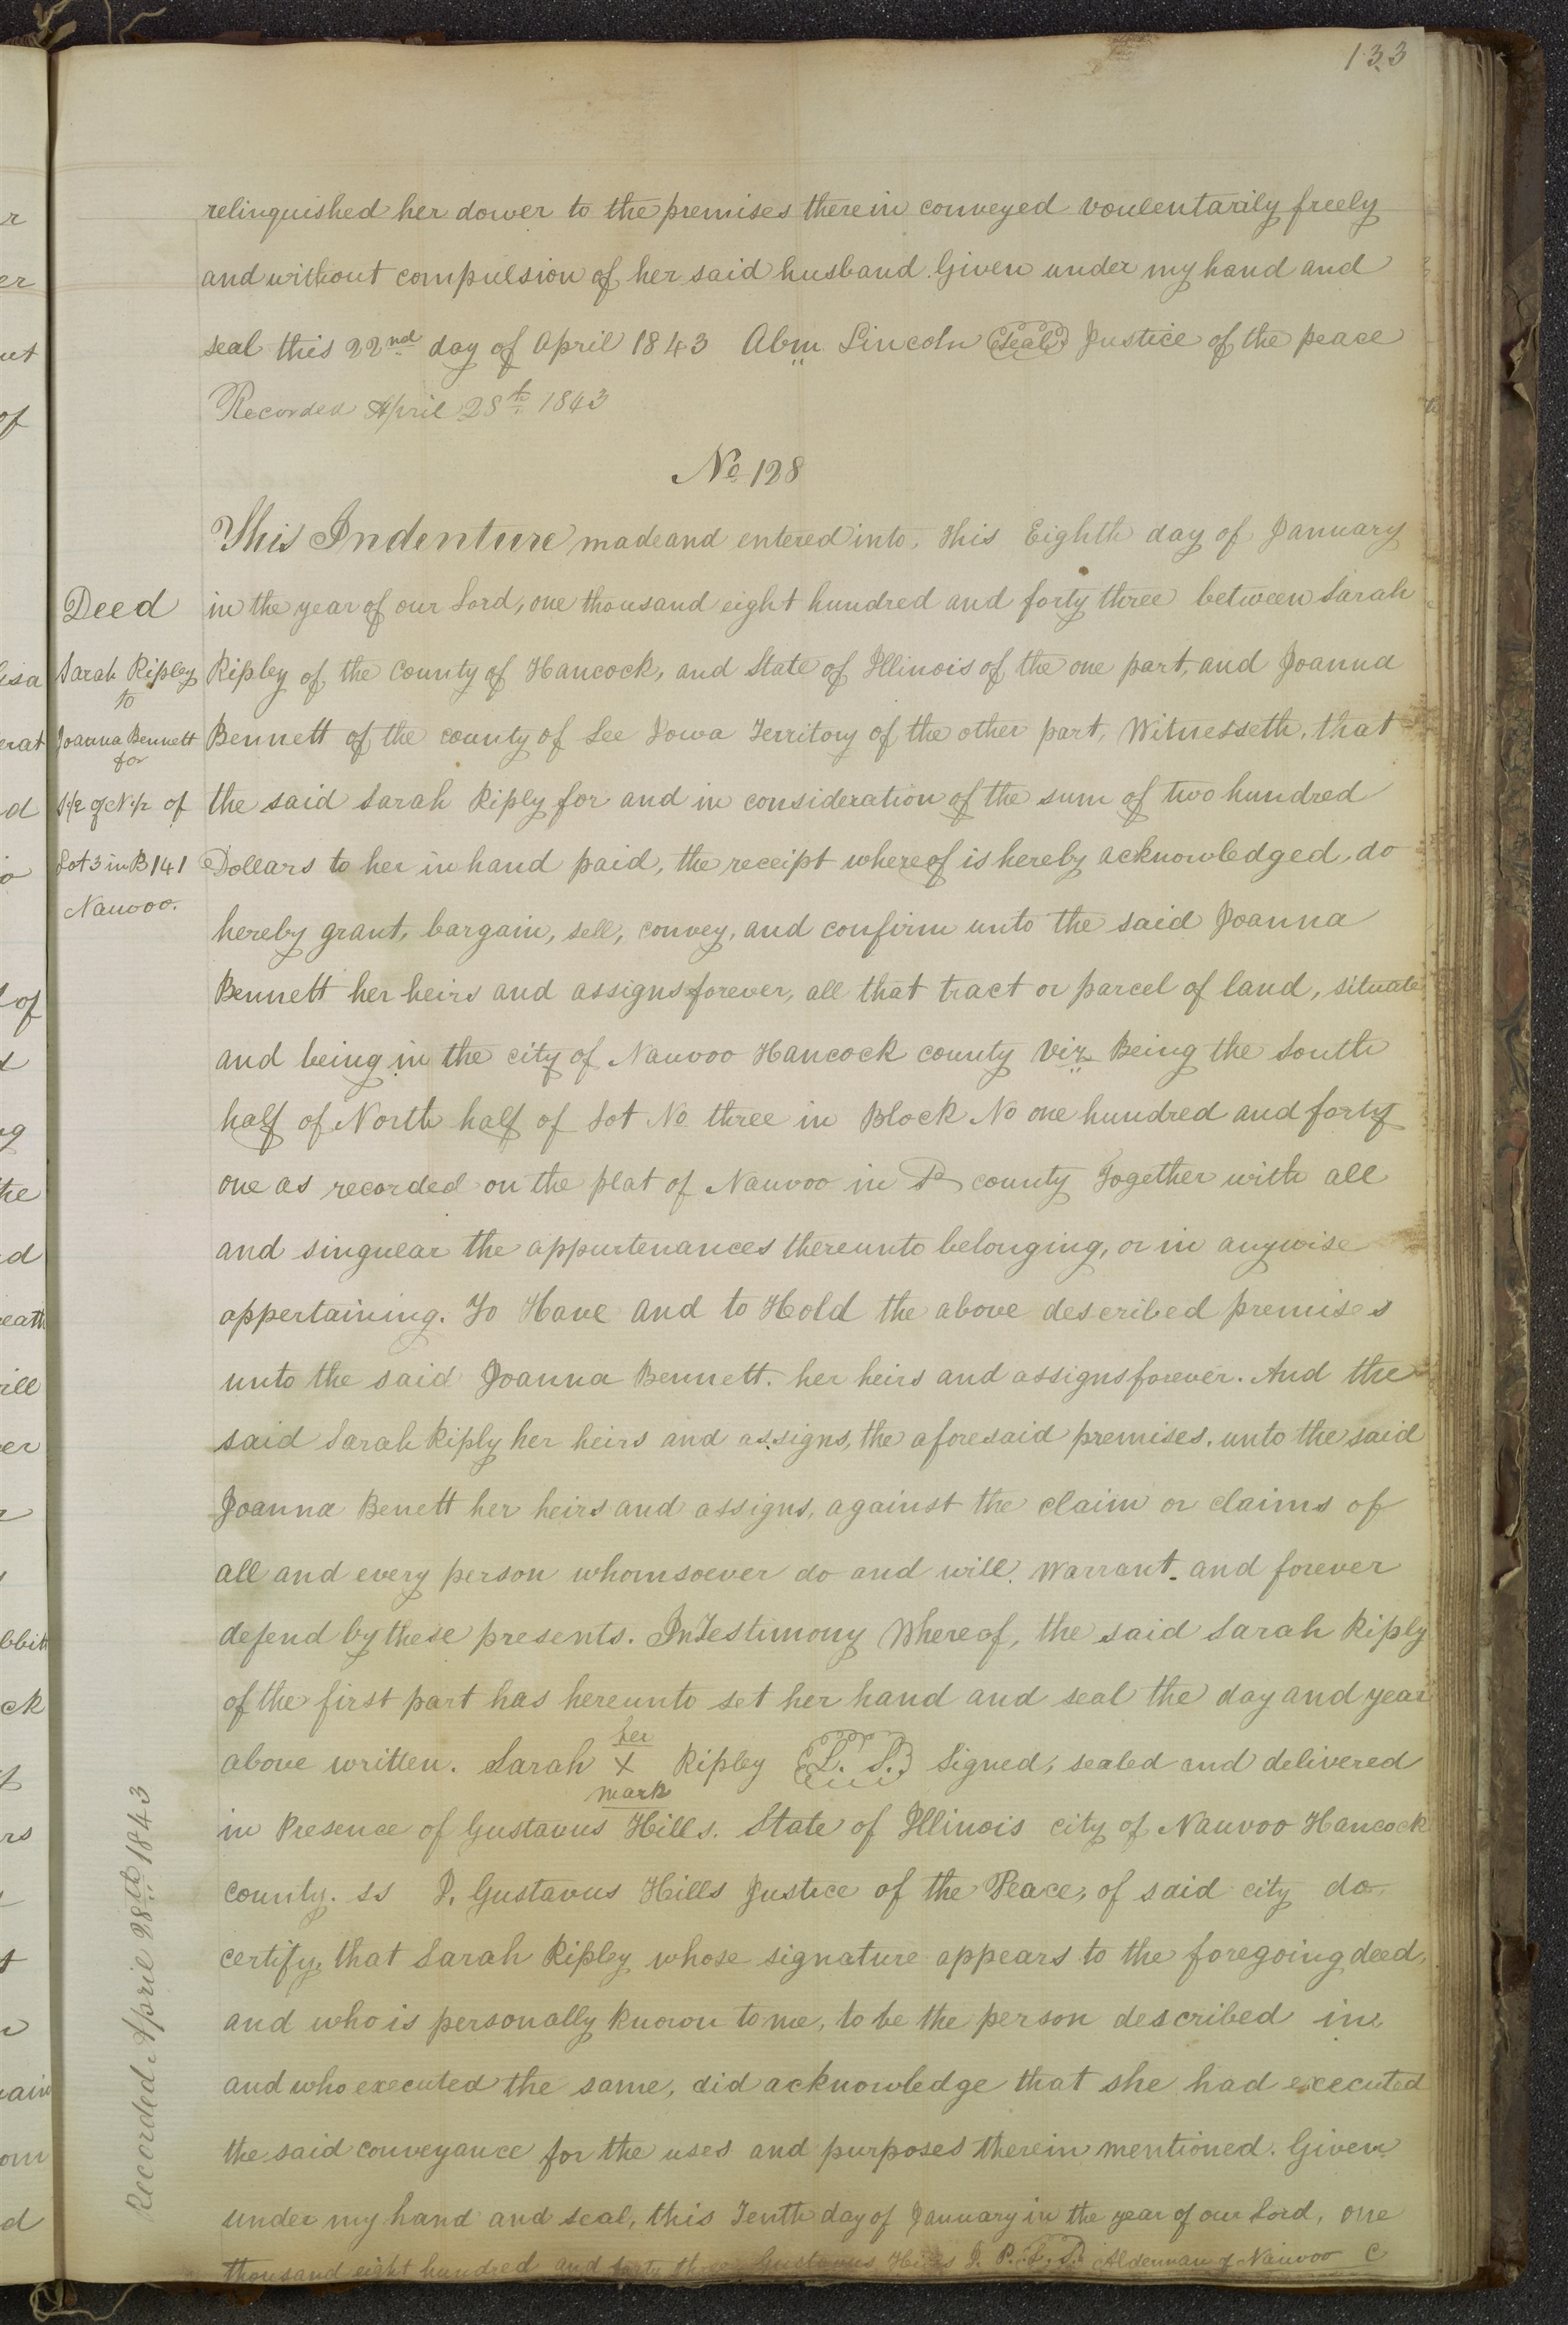 133
relinquished her dower to the premises therein conveyed voulentarily freely
and without compulsion of her said husband. Given under my hand and
seal this 22nd day of April 1843 Abm Lincoln Seal Justice of the peace
Recorded April 28th 1843
No 128
This Indenture made and entered into, this Eighth day of January
Deed
in the year of our Lord, one thousand eight hundred and forty three between Sarah
Sarah Ripley
to
Ripley of the County of Hancock, and State of Illinois of the one part, and Joanna
Joanna Bennett
for
Bennett of the county of Lee Iowa Territory of the other part, Witnesseth, that
S 1/2 of N 1/2 of
the said Sarah Riply for and in consideration of the sum of two hundred
Lot 3 in B 141
Dollars to her in hand paid, the receipt whereof is hereby acknowledged, do
Nauvoo.
hereby grant, bargain, sell, convey, and confirm unto the said Joanna
Bennett her heirs and assigns forever, all that tract or parcel of land, situate
and being in the city of Nauvoo Hancock county viz Being the South
half of North half of Lot No three in Block No one hundred and forty
one as recorded on the plat of Nauvoo in county Together with all
and singular the appurtenances thereunto belonging, or in anywise
appertaining. To Have and to Hold the above described premises
unto the said Joanna Bennett. her heirs and assigns forever. And the
said Sarah Riply her heirs and assigns, the aforesaid premises. unto the said
Joanna Benett her heirs and assigns, against the claim or claims of
all and every person whomsoever do and will. Warrant. and forever
defend by these presents. In Testimony Whereof, the said Sarah Riply
of the first part has hereunto set her hand and seal the day and year
her
above written. Sarah X Ripley L. S. Signed, sealed and delivered
mark
in Presence of Gustavus Hills. State of Illinois city of Nauvoo Hancock
county. ss I, Gustavus Hills Justice of the Peace, of said city do
certify, that Sarah Ripley whose signature appears to the foregoing deed,
and who is personally known to me, to be the person described in
and who executed the same, did acknowledge that she had executed
the said conveyance for the uses and purposes therein mentioned. Given
under my hand and seal, this Tenth day of January in the year of our Lord, one
thousand eight hundred and forty three Gustavus Hills J. P. L. S. Alderman of Nauvoo C
Recorded April 28th 1843